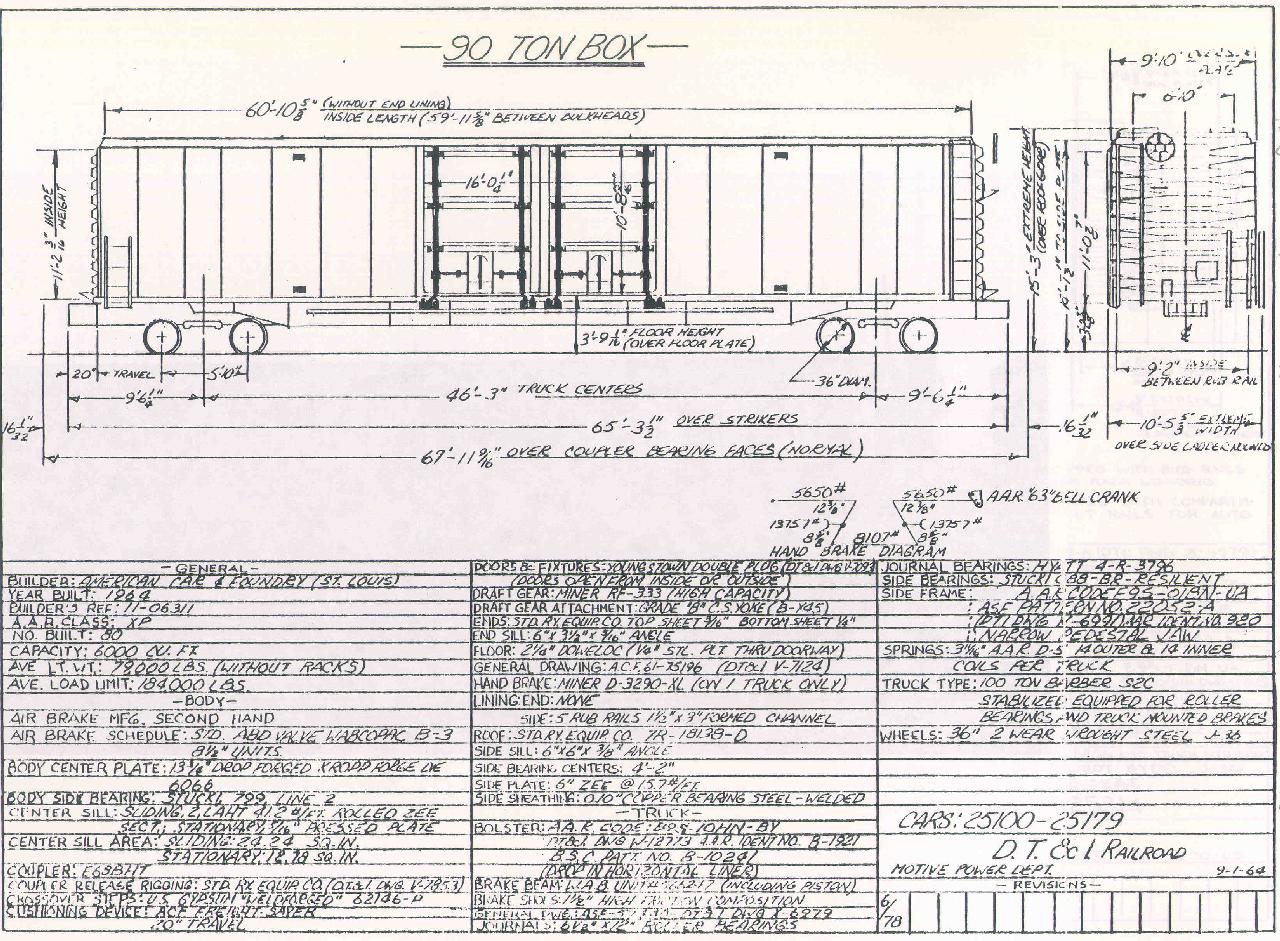 90 TON BOX
9'-10"
6'-10"
60'-10 5/8" (WITHOUT END LINING)
INSIDE LENGTH (59'-11 5/8" BETWEEN BULKHEADS)
16'-0 1/4"
11'-2 3/16" INSIDE HEIGHT
15'-3" EXTREME HEIGHT
11'-0
3'-9 1/16" FLOOR HEIGHT
(OVER FLOOR PLATE)
9'-2" INSIDE
BETWEEN RUB RAIL
20" TRAVEL
5'-10"
36" DIAM.
9'-6 1/4"
46'-3" TRUCK CENTERS
9'-6 1/4"
16 1/32"
65'-3 1/2" OVER STRIKERS
16 1/32"
10'-5 EXTREME WIDTH
67'-11 9/16" OVER COUPLER BEARING FACES (NORMAL)
OVER SIDE LADDER
5650# 5650# A.A.R. "63" BELL CRANK
12 3/8" 12 3/8"
13757# 13757#
8 5/8" 8107# 8 5/8"
HAND BRAKE DIAGRAM
-GENERAL-
BUILDER: AMERICAN CAR & FOUNDRY (ST. LOUIS)
YEAR BUILT: 1964
BUILDER'S REF: 11-06311
A.A.R. CLASS: XP
NO. BUILT: 80
CAPACITY: 6000 CU. FT.
AVE LT. WT.: 79000 LBS. (WITHOUT RACKS)
AVE. LOAD LIMIT: 184000 LBS.
-BODY-
AIR BRAKE MFG. SECOND HAND
AIR BRAKE SCHEDULE: STD. ABD VALVE WABCOPAC B-3
8 1/2" UNITS
BODY CENTER PLATE: DROP FORGED
6066
BODY SIDE BEARING: STUCKI, 799, LINE 2
CENTER SILL: SLIDING, 2, LAHT 41.2 #/FT. ROLLED ZEE
SECT.; STATIONARY, 7/16" PRESSED PLATE
CENTER SILL AREA: SLIDING: 24.24 SQ. IN.
STATIONARY: SQ. IN.
COUPLER:
COUPLER RELEASE RIGGING: STD. RY. EQUIP. CO. (D.T.&I. DWG. V-7853)
CROSSOVER STEPS: U.S. GYPSUM "WELDFORGED"
CUSHIONING DEVICE: ACF FREIGHT-SAVER
20" TRAVEL
DOORS & FIXTURES: YOUNGSTOWN DOUBLE PLUG
(DOORS OPEN FROM INSIDE OR OUTSIDE)
DRAFT GEAR: MINER RF-333 (HIGH CAPACITY)
DRAFT GEAR ATTACHMENT: GRADE "B" C.S. YOKE (B-Y45)
ENDS: STD. RY. EQUIP. CO. TOP SHEET 3/16" BOTTOM SHEET 1/4"
END SILL: 6" X 3 1/2" X 5/16" ANGLE
FLOOR: 2 1/4" DOWELOC (1/4" STL. PLT THRU DOORWAY)
GENERAL DRAWING: A.C.F. 61-75196 (DT&I V-7124)
HAND BRAKE: MINER D-3290-XL (ON 1 TRUCK ONLY)
LINING: END: NONE
SIDE: 5 RUB RAILS 1 1/2" X 3" FORMED CHANNEL
ROOF: STD. RY. EQUIP. CO. 7R-18138-D
SIDE SILL: 6" X 6" X 3/8" ANGLE
SIDE BEARING CENTERS: 4'-2"
SIDE PLATE: 6" ZEE @ 15.7#/FT.
SIDE SHEATHING: 0.10" COPPER BEARING STEEL-WELDED
-TRUCK-
BOLSTER: A.A.R. CODE:
DT&I. DWG W-12773 A.A.R. IDENT NO. B-1921
B.S.C. PATT. NO. B-10241
(DROP IN HORIZONTAL LINER)
BRAKE BEAM: (INCLUDING PISTON)
BRAKE SHOES: 1 1/2" HIGH FRICTION COMPOSITION
GENERAL DWG.: X 6279
JOURNALS: 6 1/2" X 12" ROLLER BEARINGS
JOURNAL BEARINGS: HYATT 4-R-3796
SIDE BEARINGS: STUCKI 688-BR-RESILIENT
SIDE FRAME: A.A.R. CODE
A.S.F. PATTERN NO. 22052-A
IDENT. NO. 920
NARROW PEDESTAL JAW
SPRINGS: 3 11/16" A.A.R. D-5 14 OUTER & 14 INNER
COILS PER TRUCK
TRUCK TYPE: 100 TON BARBER S2C
STABILIZED EQUIPPED FOR ROLLER
BEARINGS AND TRUCK MOUNTED BRAKES
WHEELS: 36" 2 WEAR WROUGHT STEEL J-36
CARS: 25100-25179
D. T. & I RAILROAD
MOTIVE POWER DEPT. 9-1-64
-REVISIONS-
6/78